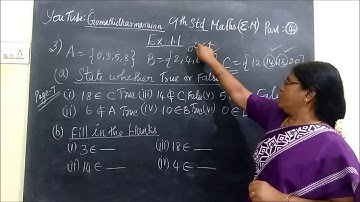 YouTube: Gomathidharmarairn 9th Std Maths (E.M) Part: 4
Ex 1.1
3) A = {0,3,5,8} B = {2,4, C = {12 (14)(18) 20}
(a) State whether True or False
Page-7
(i) 18 ∈ C True (iii) 14 ∉ C False (v) 5
(ii) 6 ∉ A True (iv) 10 ∈ B True (vi) 0
(b) Fill in the blanks
(i) 3 ∈ ___ (iii) 18 ∈ ___
(ii) 14 ∈ ___ (iv) 4 ∈ ___